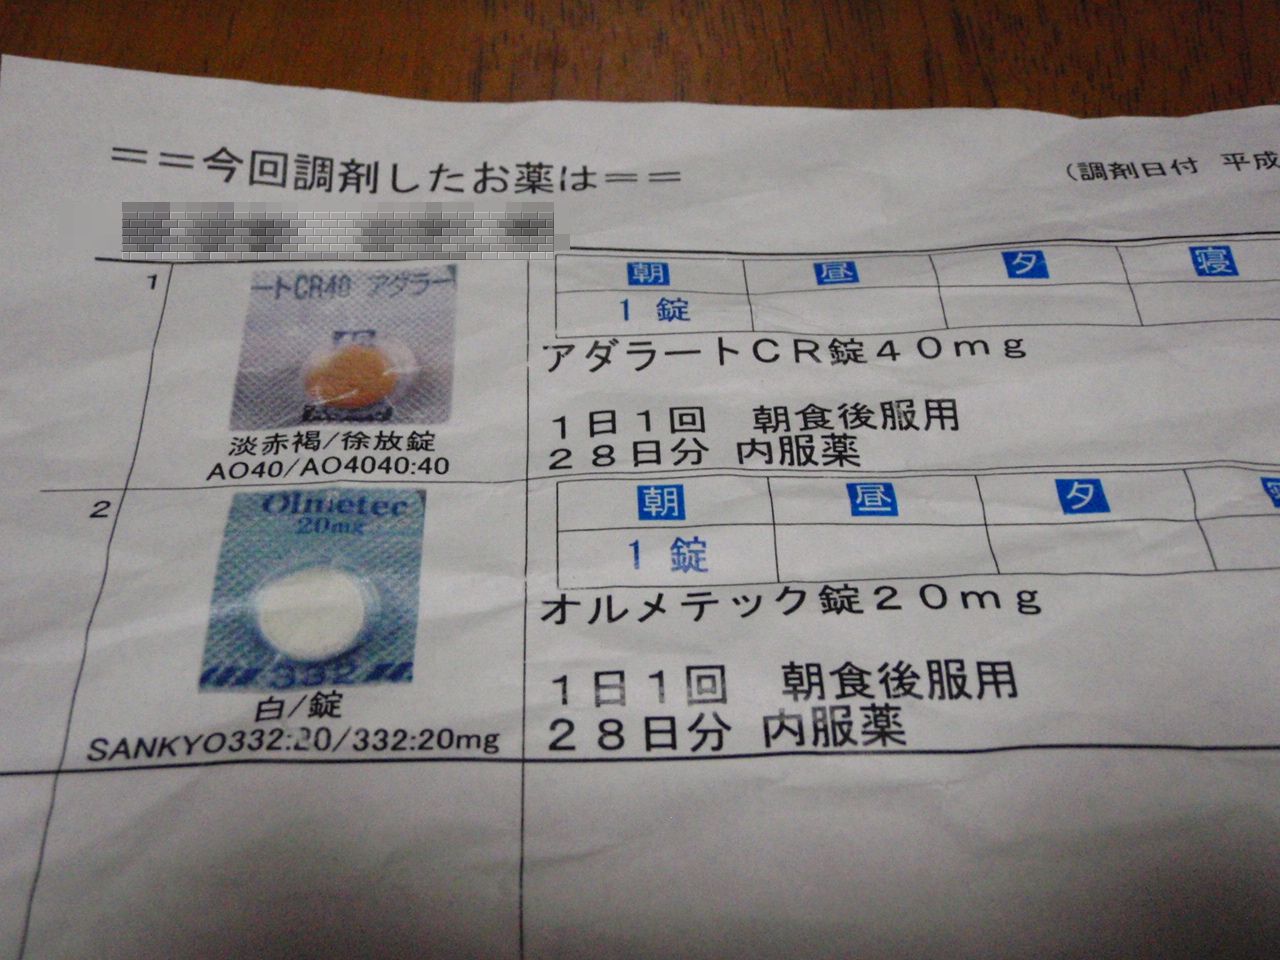 ==今回調剤したお薬は==
(調剤日付 平成
1
朝 昼 夕 寝
1錠
ートCR40 アダラー
アダラートCR錠40mg
淡赤褐/徐放錠
AO40/AO4040:40
1日1回 朝食後服用
28日分 内服薬
2
朝 昼 夕
1錠
Olmetec
20mg
332
オルメテック錠20mg
白/錠
SANKYO332:20/332:20mg
1日1回 朝食後服用
28日分 内服薬